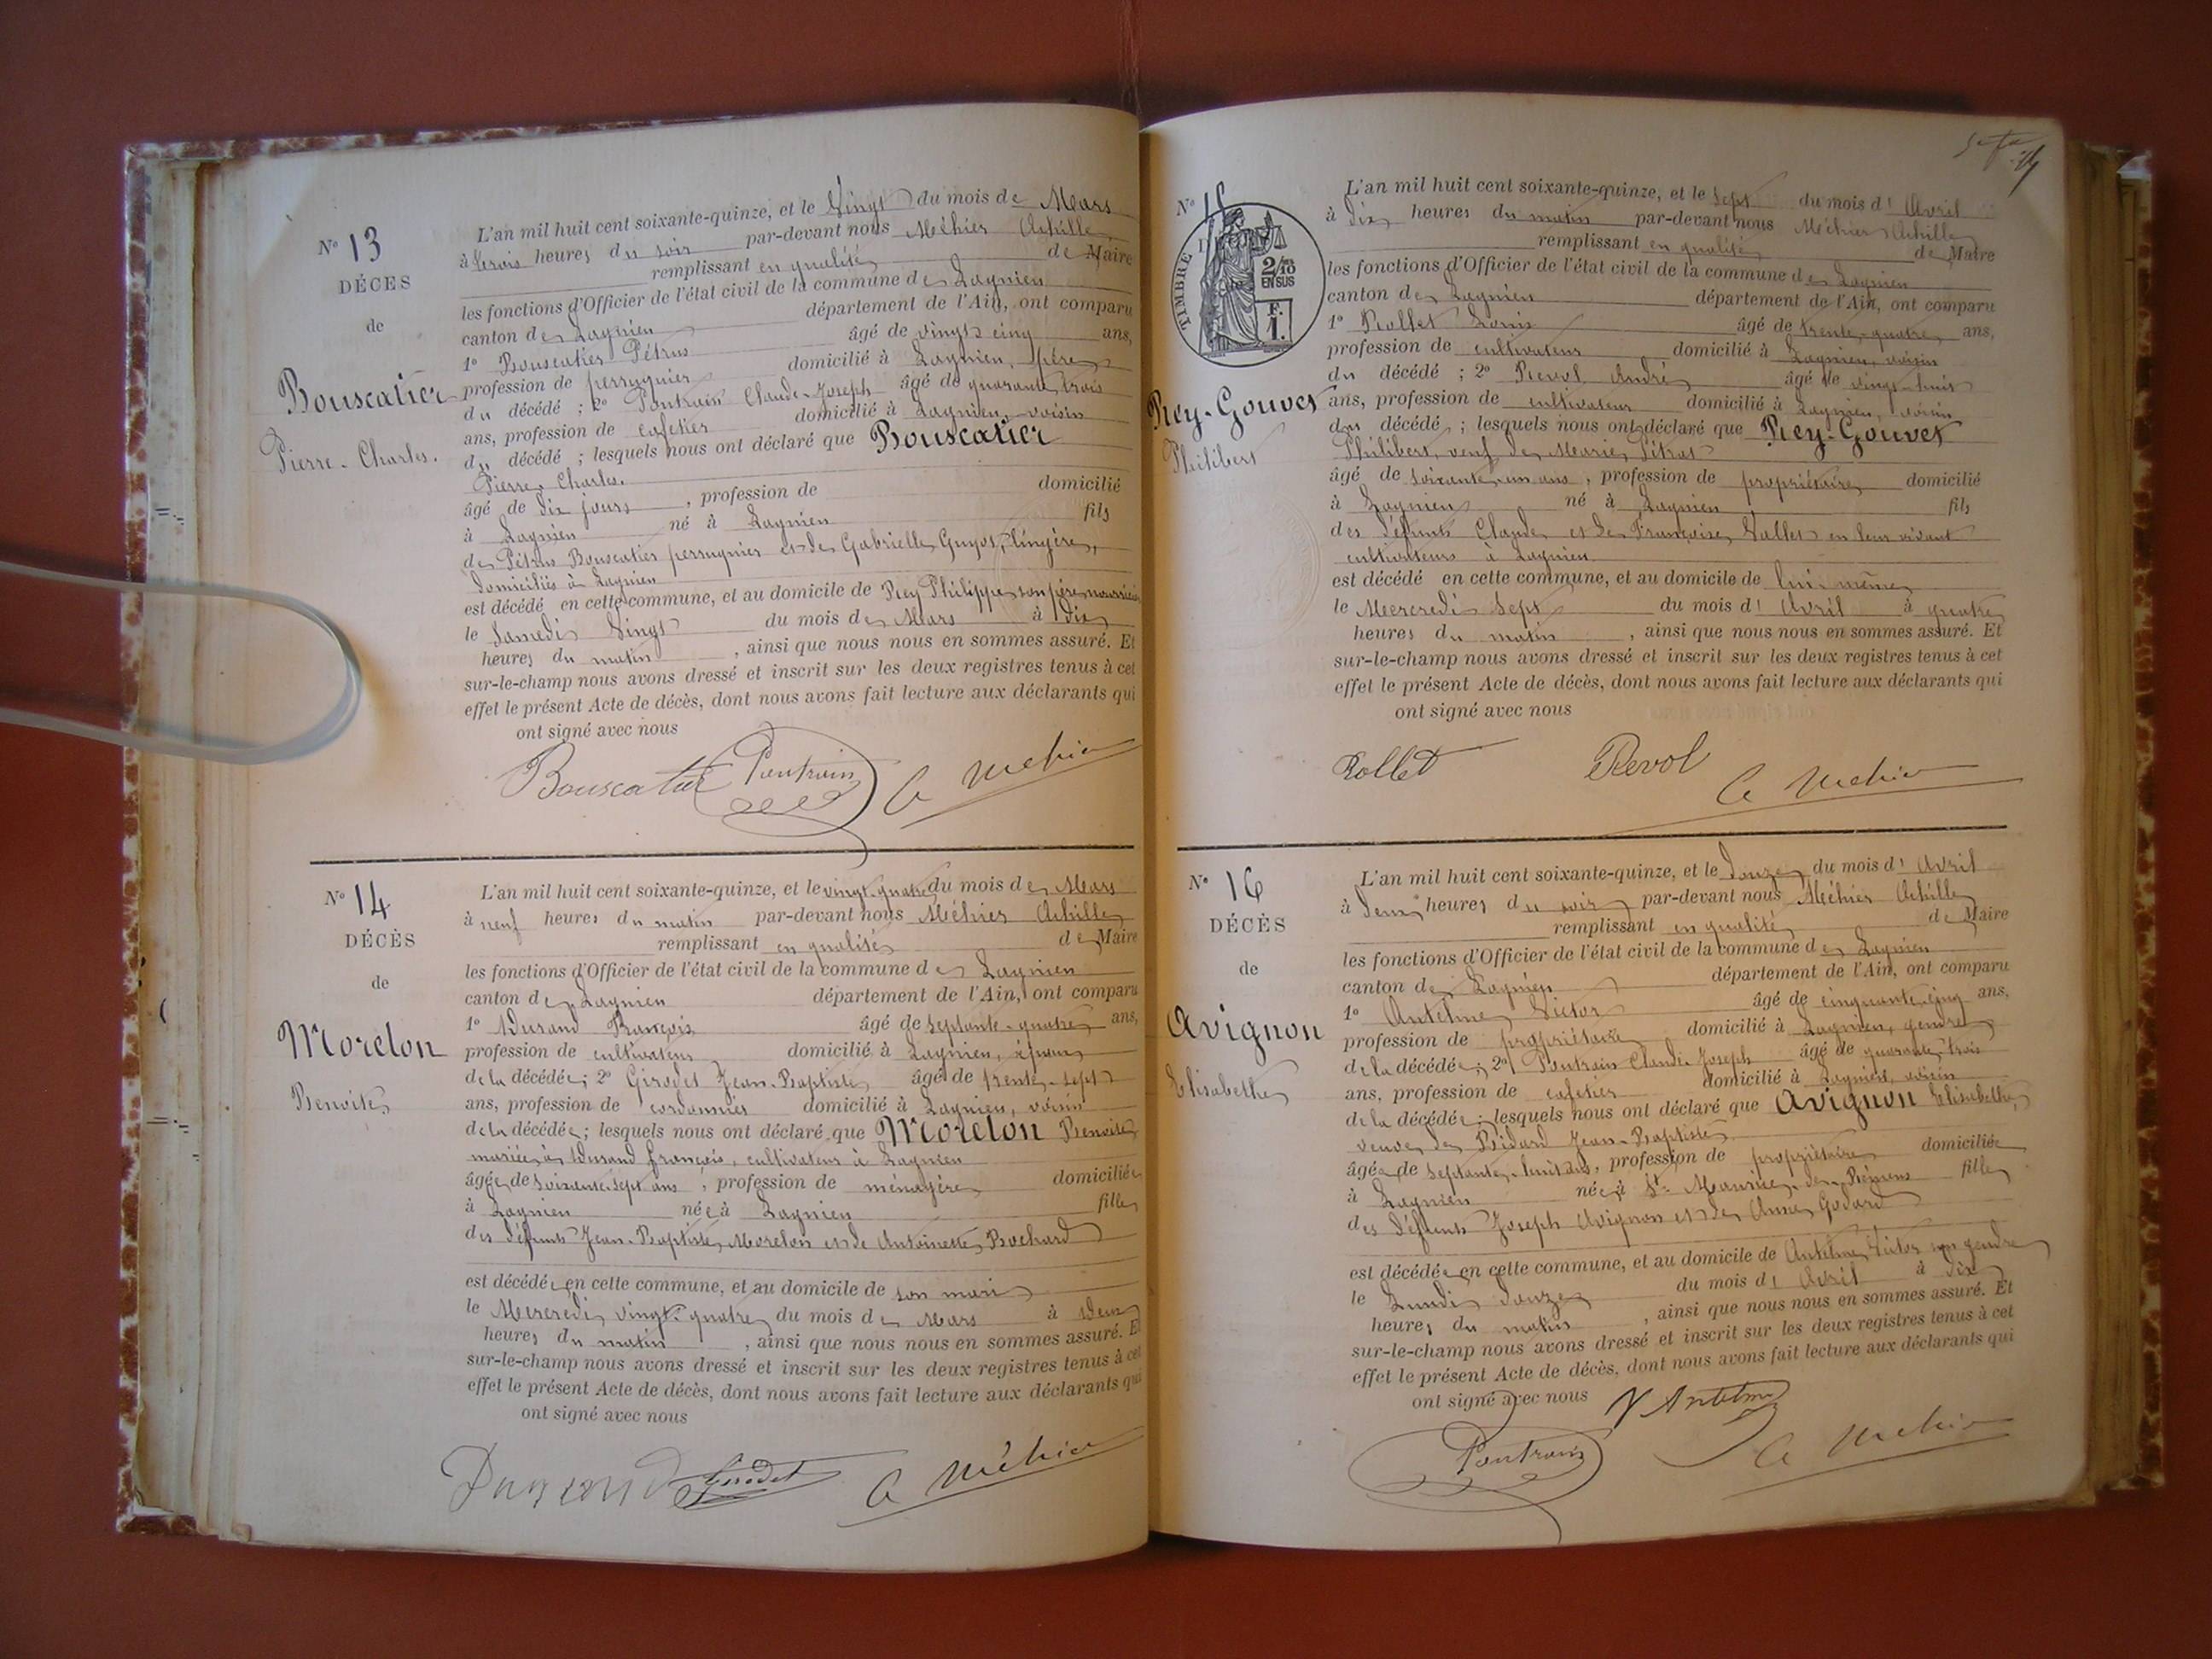 N° 13
DÉCÈS
de
Bouscatier
Pierre-Charles.
L'an mil huit cent soixante-quinze, et le Vingt du mois de Mars
à trois heures du soir par-devant nous Méhier Achille
remplissant en qualité de Maire
les fonctions d'Officier de l'état civil de la commune de Lagnieu
canton de Lagnieu département de l'Ain, ont comparu
1° Bouscatier Pétrus âgé de vingt cinq ans,
profession de perruquier domicilié à Lagnieu, père
du décédé ; 2° Pontrain Claude-Joseph âgé de quarante trois
ans, profession de cafetier domicilié à Lagnieu, voisin
du décédé ; lesquels nous ont déclaré que Bouscatier
Pierre Charles.
âgé de dix jours , profession de domicilié
à Lagnieu né à Lagnieu fils
de Pétrus Bouscatier perruquier et de Gabrielle Guyot, lingère,
domiciliés à Lagnieu
est décédé en cette commune, et au domicile de Rey Philippe son père nourricier
le Samedi Vingt du mois de Mars à dix
heures du matin , ainsi que nous nous en sommes assuré. Et
sur-le-champ nous avons dressé et inscrit sur les deux registres tenus à cet
effet le présent Acte de décès, dont nous avons fait lecture aux déclarants qui
ont signé avec nous
Bouscatier Pontrain A Méhier
N° 14
DÉCÈS
de
Morelon
Benoite
L'an mil huit cent soixante-quinze, et le vingt-quatre du mois de Mars
à neuf heures du matin par-devant nous Méhier Achille
remplissant en qualité de Maire
les fonctions d'Officier de l'état civil de la commune de Lagnieu
canton de Lagnieu département de l'Ain, ont comparu
1° Durand François âgé de septante-quatre ans,
profession de cultivateur domicilié à Lagnieu, époux
de la décédée; 2° Girodet Jean-Baptiste âgé de trente-sept
ans, profession de cordonnier domicilié à Lagnieu, voisin
de la décédée; lesquels nous ont déclaré que Morelon Benoite
mariée à Durand françois, cultivateur à Lagnieu
âgée de soixante-sept ans , profession de ménagère domiciliée
à Lagnieu née à Lagnieu fille
des défunts Jean-Baptiste Morelon et de Antoinette Bochard
est décédée en cette commune, et au domicile de son mari
le Mercredi vingt-quatre du mois de Mars à Deux
heures du matin , ainsi que nous nous en sommes assuré. Et
sur-le-champ nous avons dressé et inscrit sur les deux registres tenus à cet
effet le présent Acte de décès, dont nous avons fait lecture aux déclarants qui
ont signé avec nous
Durand Girodet A Méhier
N° 15
TIMBRE
2/10
EN SUS
F.
1.
Rey-Gouvet
Philibert
L'an mil huit cent soixante-quinze, et le Sept du mois d' Avril
à dix heures du matin par-devant nous Méhier Achille
remplissant en qualité de Maire
les fonctions d'Officier de l'état civil de la commune de Lagnieu
canton de Lagnieu département de l'Ain, ont comparu
1° Rollet Louis âgé de trente-quatre ans,
profession de cultivateur domicilié à Lagnieu, voisin
du décédé ; 2° Revol André âgé de vingt-huit
ans, profession de cultivateur domicilié à Lagnieu, voisin
du décédé ; lesquels nous ont déclaré que Rey-Gouvet
Philibert, veuf de Marie Pétrat
âgé de soixante-un ans , profession de propriétaire domicilié
à Lagnieu né à Lagnieu fils
des défunts Claude et de Françoise Vallet en leur vivant
cultivateurs à Lagnieu
est décédé en cette commune, et au domicile de lui-même
le Mercredi Sept du mois d' Avril à quatre
heures du matin , ainsi que nous nous en sommes assuré. Et
sur-le-champ nous avons dressé et inscrit sur les deux registres tenus à cet
effet le présent Acte de décès, dont nous avons fait lecture aux déclarants qui
ont signé avec nous
Rollet Revol A Méhier
N° 16
DÉCÈS
de
Avignon
Elisabeth
L'an mil huit cent soixante-quinze, et le Douze du mois d' Avril
à deux heures du soir par-devant nous Méhier Achille
remplissant en qualité de Maire
les fonctions d'Officier de l'état civil de la commune de Lagnieu
canton de Lagnieu département de l'Ain, ont comparu
1° Antelme Victor âgé de cinquante-cinq ans,
profession de propriétaire domicilié à Lagnieu, gendre
de la décédée; 2° Pontrain Claude-Joseph âgé de quarante-trois
ans, profession de cafetier domicilié à Lagnieu, voisin
de la décédée; lesquels nous ont déclaré que Avignon Elisabeth,
veuve de Bidard Jean-Baptiste
âgée de septante-huit ans, profession de propriétaire domiciliée
à Lagnieu née à St Maurice-de-Rémens fille
des défunts Joseph Avignon et de Anne Godard
est décédée en cette commune, et au domicile de Antelme Victor son gendre
le Lundi Douze du mois d' Avril à dix
heures du matin , ainsi que nous nous en sommes assuré. Et
sur-le-champ nous avons dressé et inscrit sur les deux registres tenus à cet
effet le présent Acte de décès, dont nous avons fait lecture aux déclarants qui
ont signé avec nous V Antelme
Pontrain A Méhier